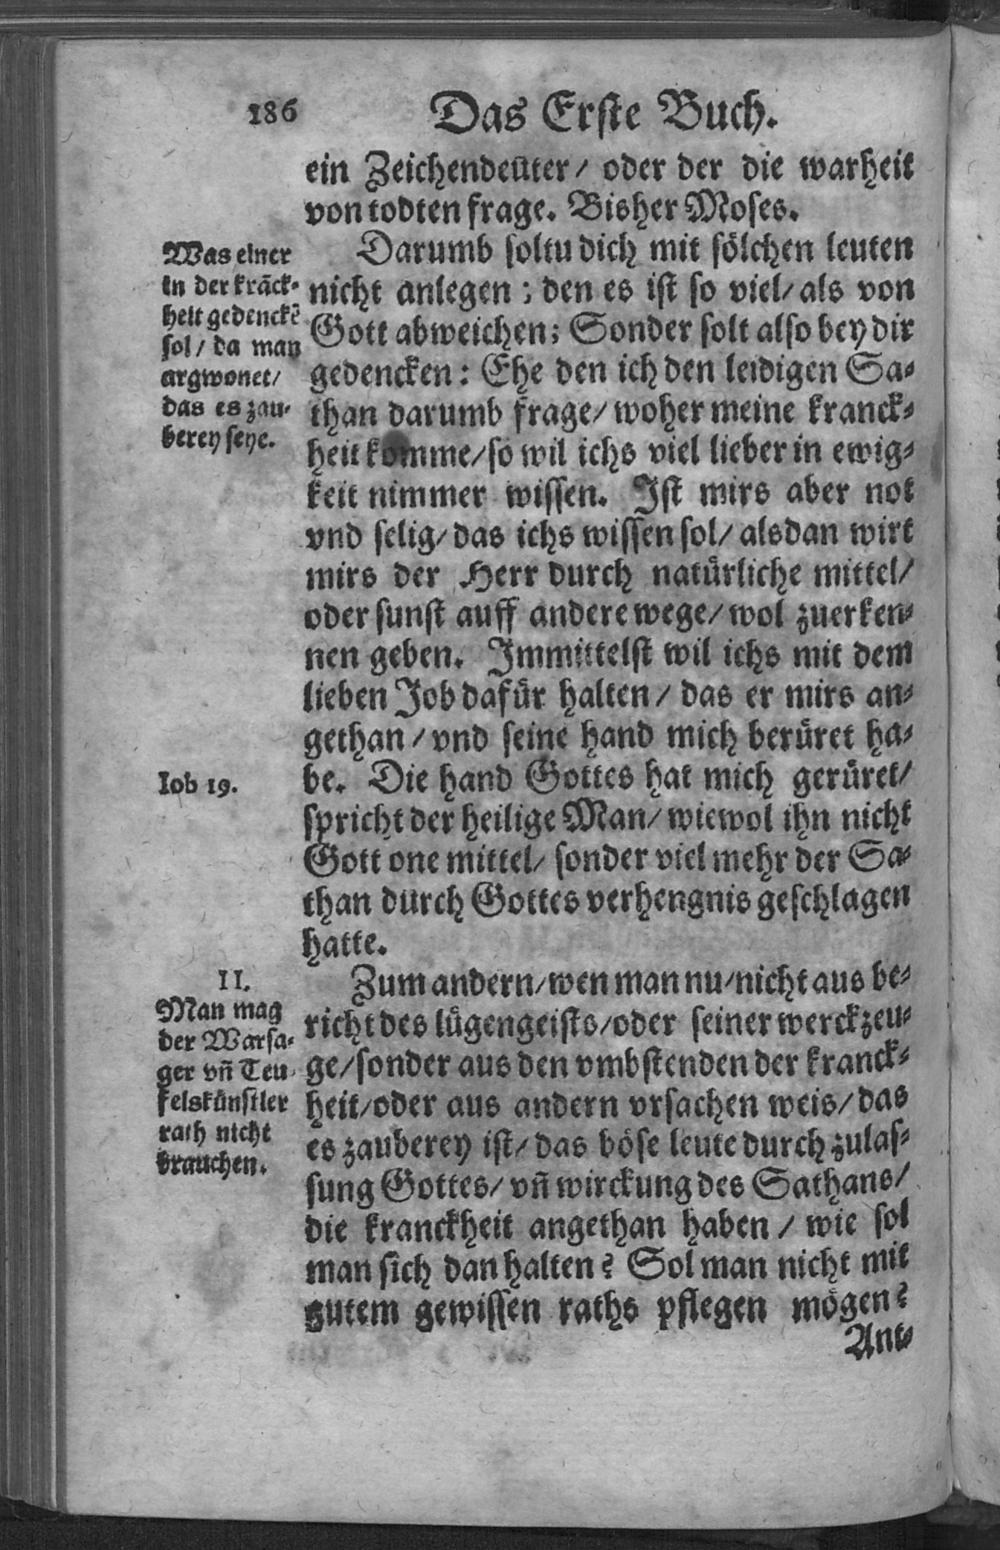 186
Das Erste Buch.
ein Zeichendeüter/ oder der die warheit
von todten frage. Bisher Moses.
Was einer
in der kräck-
heit gedenckē
sol/ da man
argwonet/
das es zau-
berey seye.
Darumb soltu dich mit sölchen leuten
nicht anlegen; den es ist so viel/ als von
Gott abweichen; Sonder solt also bey dir
gedencken: Ehe den ich den leidigen Sa-
than darumb frage/ woher meine kranck-
heit komme/ so wil ichs viel lieber in ewig-
keit nimmer wissen. Ist mirs aber not
vnd selig/ das ichs wissen sol/ alsdan wirt
mirs der Herr durch natürliche mittel/
oder sunst auff andere wege/ wol zuerken-
nen geben. Immittelst wil ichs mit dem
lieben Job dafür halten/ das er mirs an-
gethan/ vnd seine hand mich berüret ha-
Iob 19.
be. Die hand Gottes hat mich gerüret/
spricht der heilige Man/ wiewol ihn nicht
Gott one mittel/ sonder viel mehr der Sa-
than durch Gottes verhengnis geschlagen
hatte.
II.
Man mag
der Warsa-
ger vñ Teu-
felskünstler
rath nicht
brauchen.
Zum andern/ wen man nu/ nicht aus be-
richt des lügengeists/ oder seiner werckzeu-
ge/ sonder aus den vmbstenden der kranck-
heit/ oder aus andern vrsachen weis/ das
es zauberey ist/ das böse leute durch zulas-
sung Gottes/ vñ wirckung des Sathans/
die kranckheit angethan haben/ wie sol
man sich dan halten? Sol man nicht mit
gutem gewissen raths pflegen mögen?
Ant-